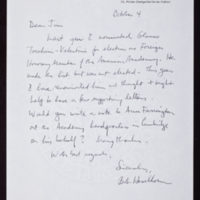 October 4
Dear Jim
Last year I nominated Glauco
Tocchini-Valentini for election as Foreign
Honorary Member of the American Academy. He
made the list but was not elected. This year
I have renominated him and thought it might
help to have a few supporting letters.
Would you write a note to Anne Farrington
at the Academy headquarters in Cambridge
on his behalf? Many thanks.
With best regards,
Sincerely,
Bob